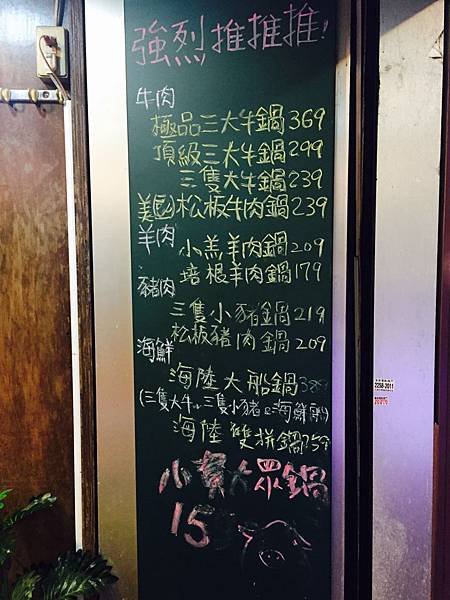 強烈推推推!
牛肉
極品三大牛鍋369
頂級三大牛鍋299
三隻大牛鍋239
美國松板牛肉鍋239
羊肉
小羔羊肉鍋209
培根羊肉鍋179
豬肉
三隻小豬鍋219
松板豬肉鍋209
海鮮
海陸大船鍋389
(三隻大牛 三隻小豬 海鮮
海陸雙拼鍋259
小資大眾鍋
15
2258-2011